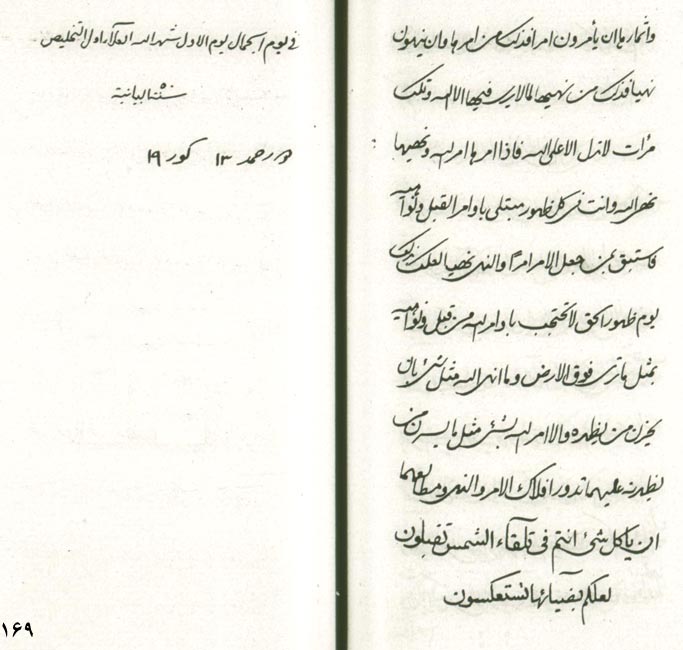 واثمارها ان يأمرون امرا فذلك من امرها وان ينهون
نهيا فذلك من نهيها لما لا يرى فيها الا الله وتلك
مرآت لم تزل الاعلى الله فاذا امرها امر الله ونهيها
نهى الله وانت فى كل ظهور مبتلى باوامر القبل ونواهيه
فاستبق عمن جعل الامر امرا والنهى نهيا لعلك بذلك
يوم ظهور الحق لا تحتجب باوامر الله من قبل ونواهيه
بمثل ما ترى فوق الارض وما انهى الله مثل شىء بان
يحزن من يظهره ولا امر الله بشىء مثل ما يسرن من
يظهرنه عليهما تدور افلاك الامر والنهى ومطالعهما
ان يا كل شئ انتم فى تلقاء الشمس تقبلون
لعلكم بضيائها تستعكسون
فى يوم الجمال يوم الاول شهر الله العلاء اول التخليص
سنة البيانية
١٣ ١٩
١۶٩